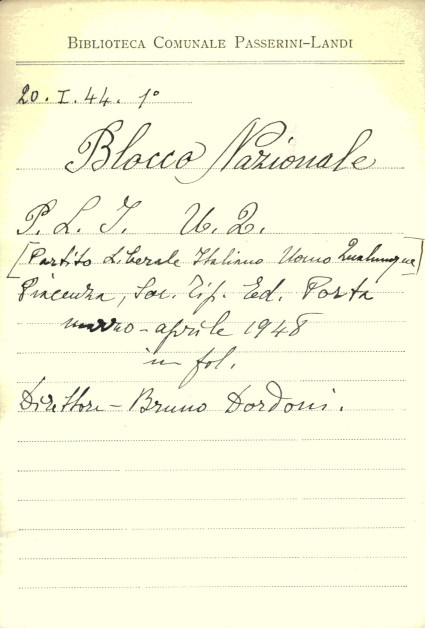 BIBLIOTECA COMUNALE PASSERINI-LANDI
20. I. 44. 1°
Blocco Nazionale
P. L. I. U. Q.
[Partito Liberale Italiano Uomo Qualunque]
Piacenza, Soc. Tip. Ed. Porta
marzo - aprile 1948
in fol.
Direttore - Bruno Dordoni.